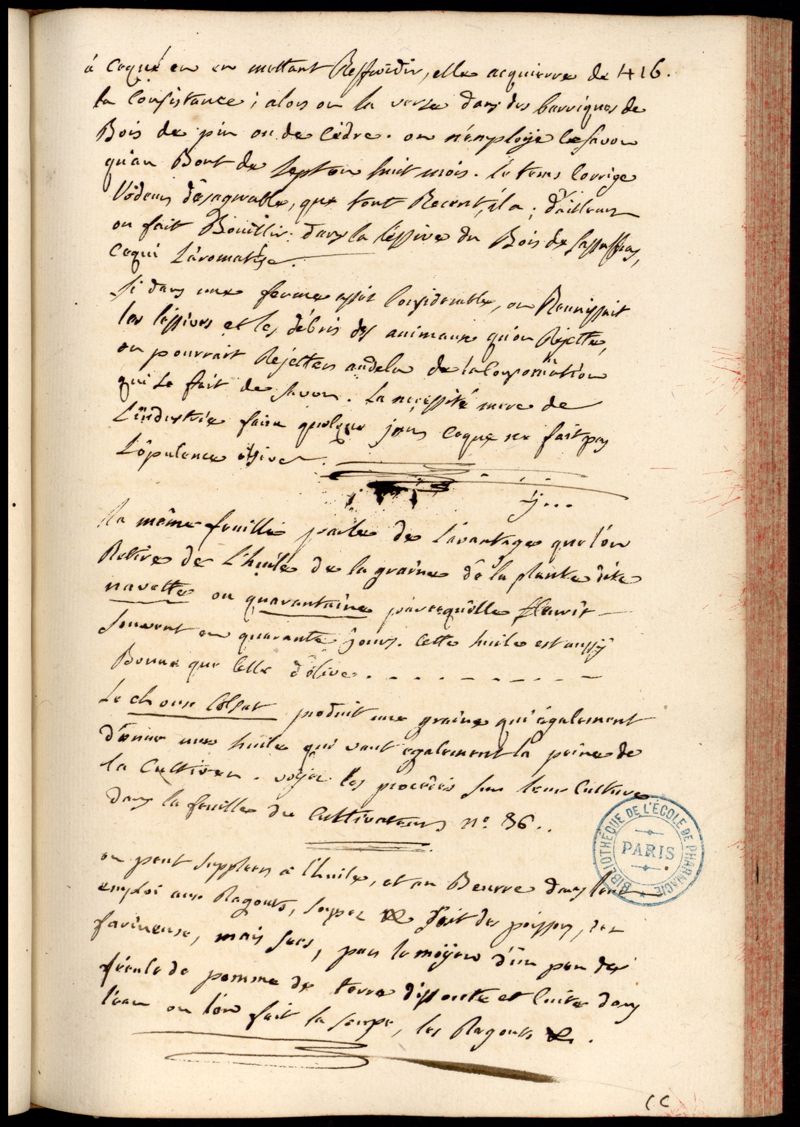 à ceque en en mettant Reffroidir, elle acquierre de 416.
la Consistance; alors on la verse dans des barriques de
Bois de pin ou de Cèdre. on n'employe le savon
qu'au Bout de sept ou huit mois. Le tems Corrige
l'odeur désagreable, que tout Recent, il a; d'ailleurs
on fait Bouillir dans la léssive du Bois de sassafras,
cequi L'aromatise.
Si dans une ferme assés Considerable, on Reunissait
les léssives et les débris des animaux qu'on Rejette,
on pourrait Rejetter audela de la Consomation
qui se fait de savon. La necéssité mere de
L'industrie faira quelque jour ceque ne fait pas
L'ôpulence oisive.
y...
La même feuille parle de L'avantage que l'on
Retire de L'huile de la graine de la plante dite
navette ou quarantaine parcequ'elle fleurit
souvent en quarante jours. Cette huile est aussy
Bonne que Celle d'olive.
Le choux Colsat produit une graine qui également
donne une huile qui vaut également la peine de
la Cultiver. voyez les procédés sur leur Culture
dans la feuille du Cultivateur, n.° 36..
on peut suppléer à l'huile, et au Beurre dans leur
emploi aux Ragouts, soupes &c soit des poissons, des
farineuse, mais secs, par le moÿen d'un peu de
fécule de pomme de terre dissoute et Cuite dans
l'eau ou l'on fait la soupe, les Ragouts &c.
BIBLIOTHÈQUE DE L'ÉCOLE DE PHARMACIE
PARIS
CC